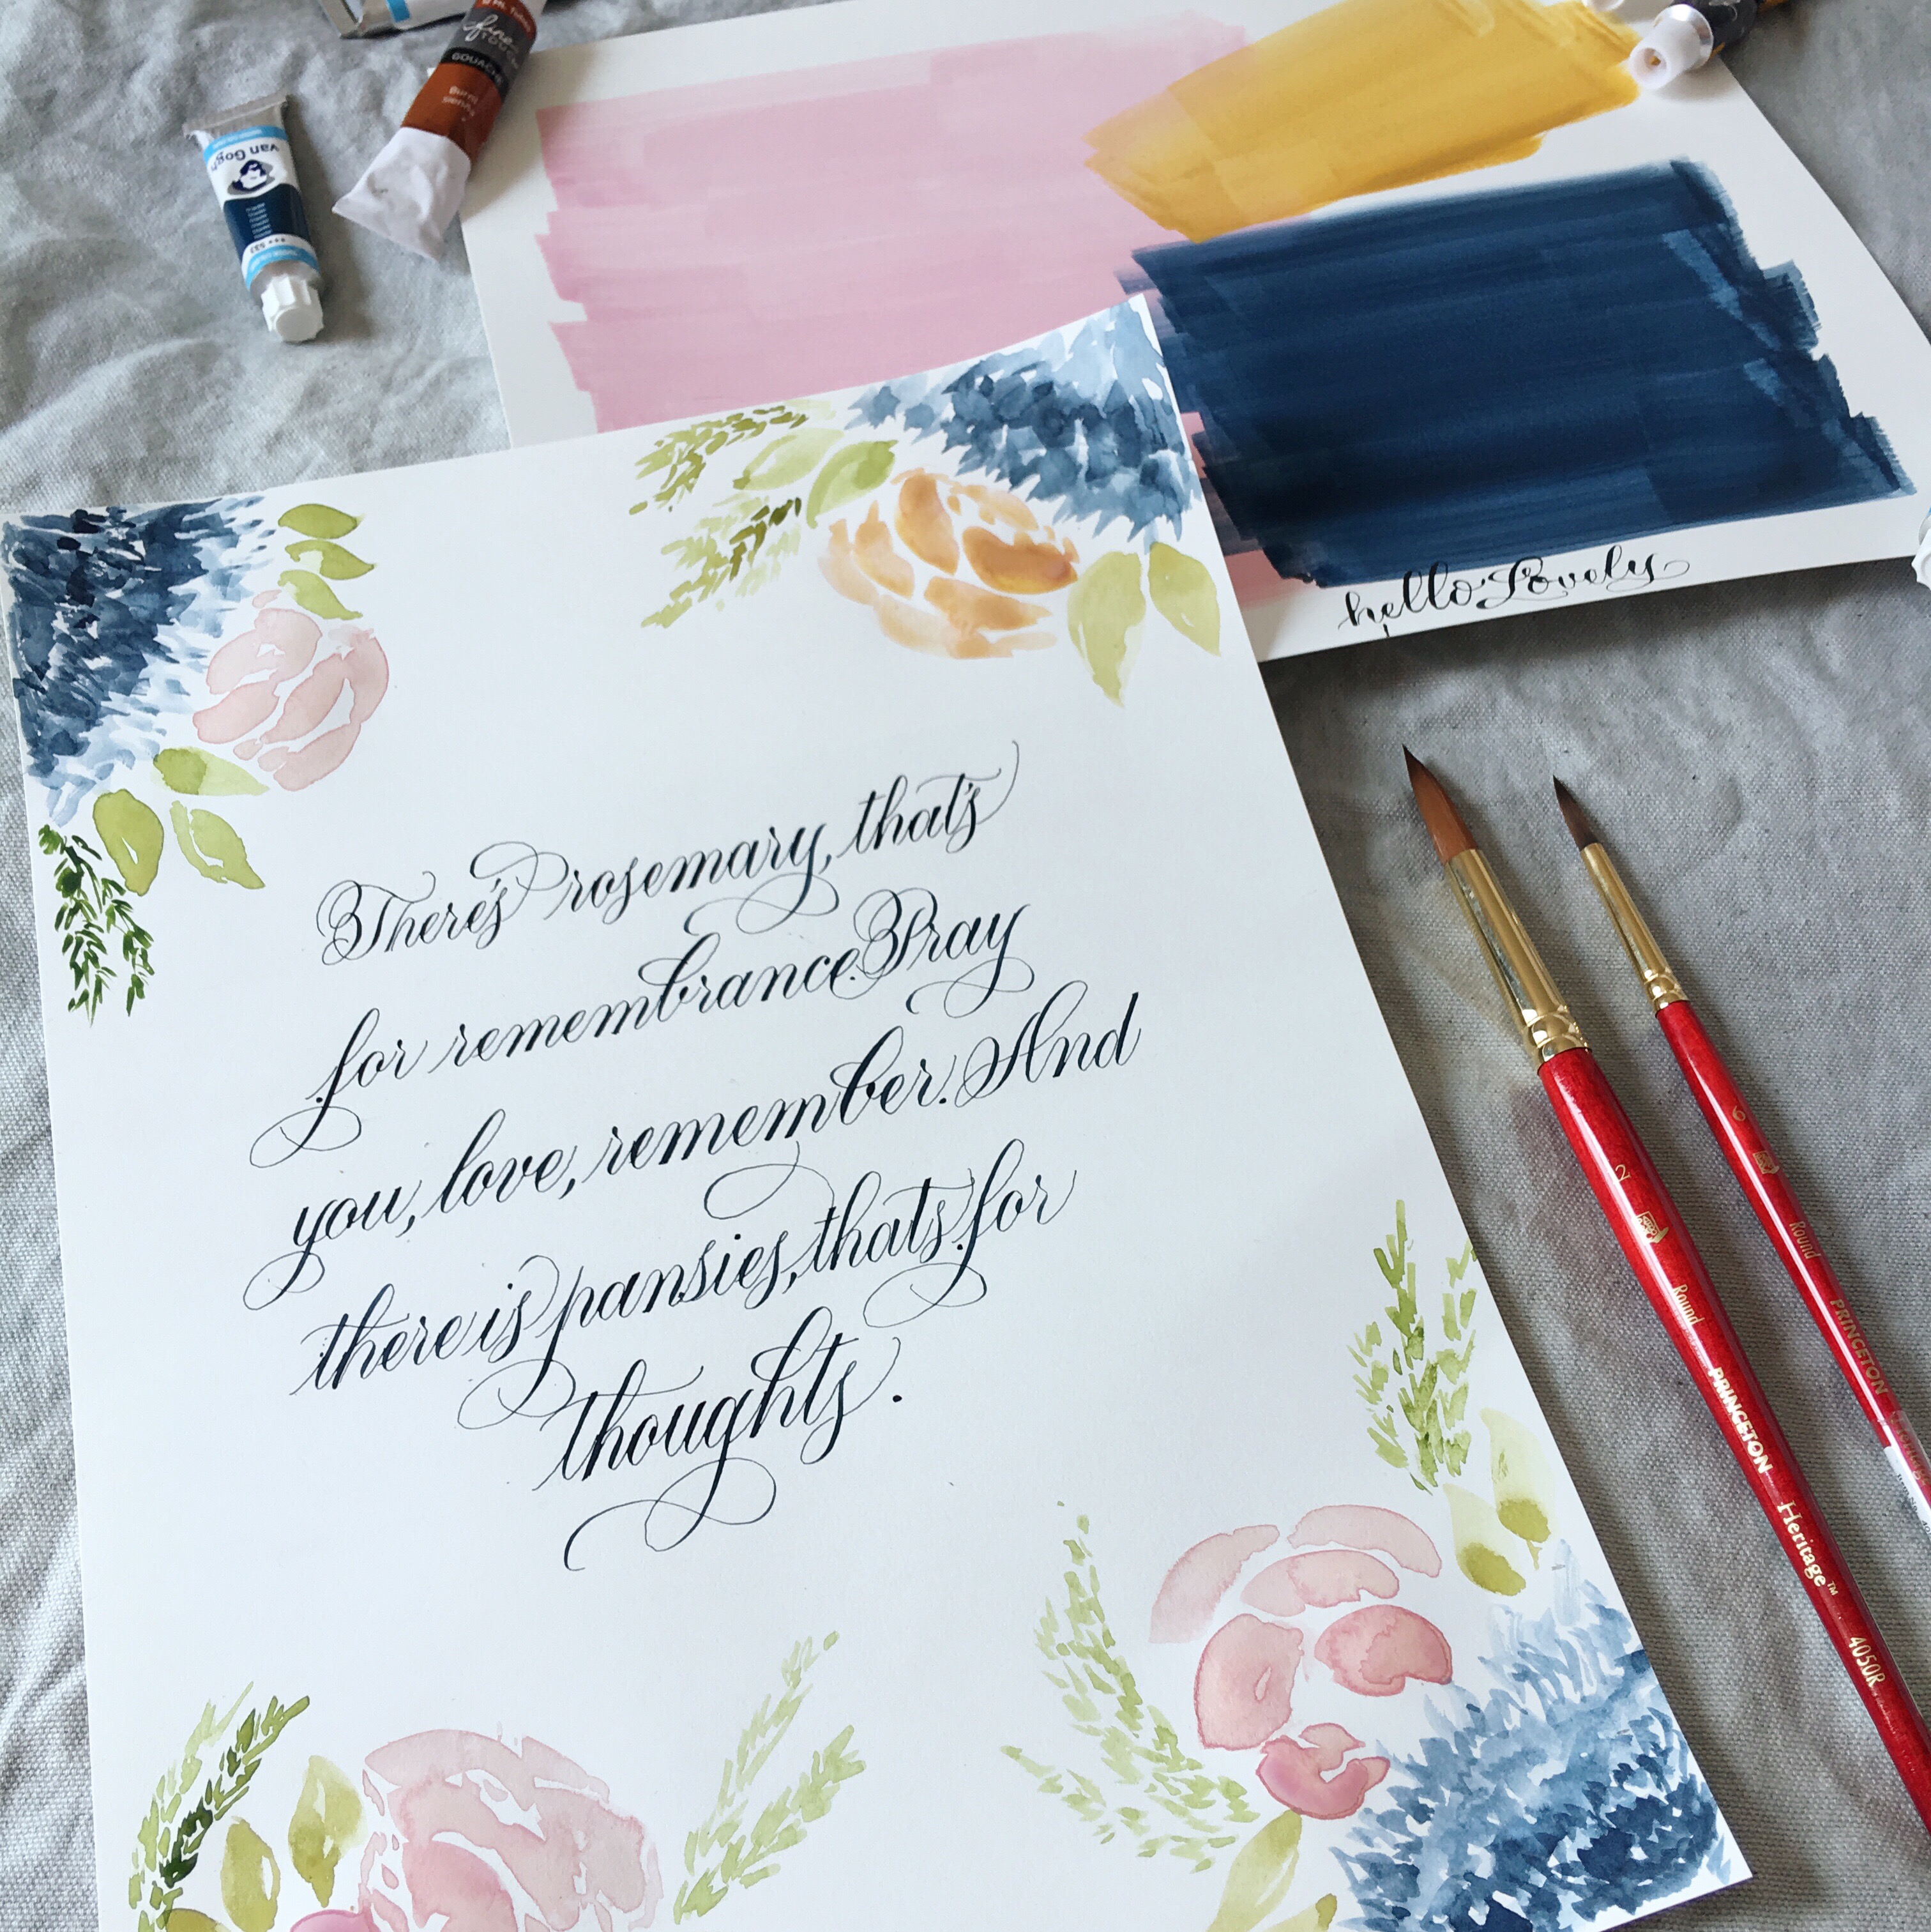 van Gogh
fine
TOUCH
GOUACHE
Burnt
Sienna
hello Lovely
There's rosemary, that's
for remembrance. Pray
you, love, remember. And
there is pansies, thats for
thoughts.
2 Round PRINCETON Heritage™ 4050R
6 Round PRINCETON